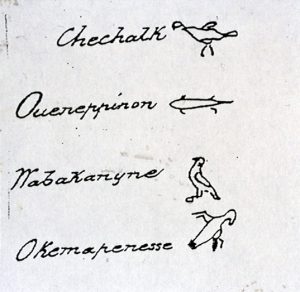 Chechalk
Queneppinon
Wabakanyne
Okemapenesse